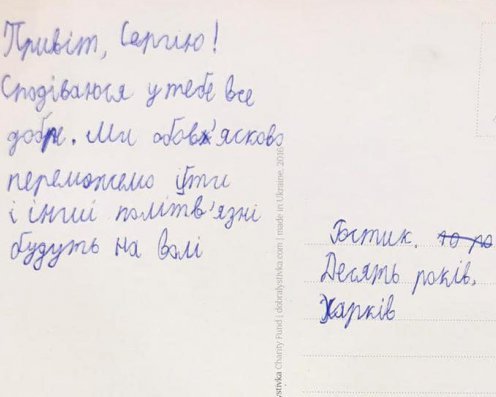 Привіт, Сергію!
Сподіваюся у тебе все
добре. Ми обовʼясково
переможемо і ти
і інші політвʼязні
будуть на волі
Костик. 10 ро
Десять років.
Харків
Charity Fund | dobralystivka.com | made in Ukraine, 2016